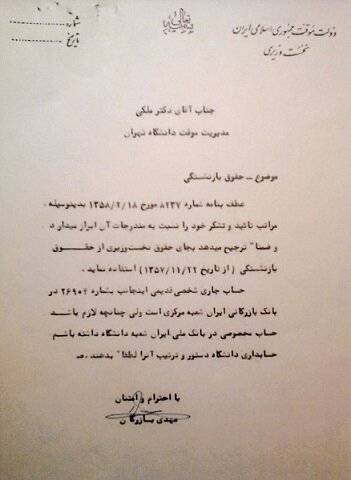 دولت موقت جمهوری اسلامی ایران
نخست وزیری
بسمه تعالی
شماره
تاریخ
جناب آقای دکتر ملکی
مدیریت موقت دانشگاه تهران
موضوع ــ حقوق بازنشستگی
عطف بنامه شماره ۸۲۳۷ مورخ ۱۳۵۸/۲/۱۸ بدینوسیله
مراتب تائید و تشکر خود را نسبت به مندرجات آن ابراز میدارد
و ضمنا" ترجیح میدهد بجای حقوق نخست‌وزیری از حقوق
بازنشستگی (از تاریخ ۱۳۵۷/۱۱/۲۲) استفاده نماید.
حساب جاری شخصی قدیمی اینجانب بشماره ۲۶۹۰۲ در
بانک بازرگانی ایران شعبه مرکزی است ولی چنانچه لازم باشد
حساب مخصوصی در بانک ملی ایران شعبه دانشگاه داشته باشم
حسابداری دانشگاه دستور و ترتیب آنرا لطفا" بدهند.
با احترام و امتنان
مهدی بازرگان